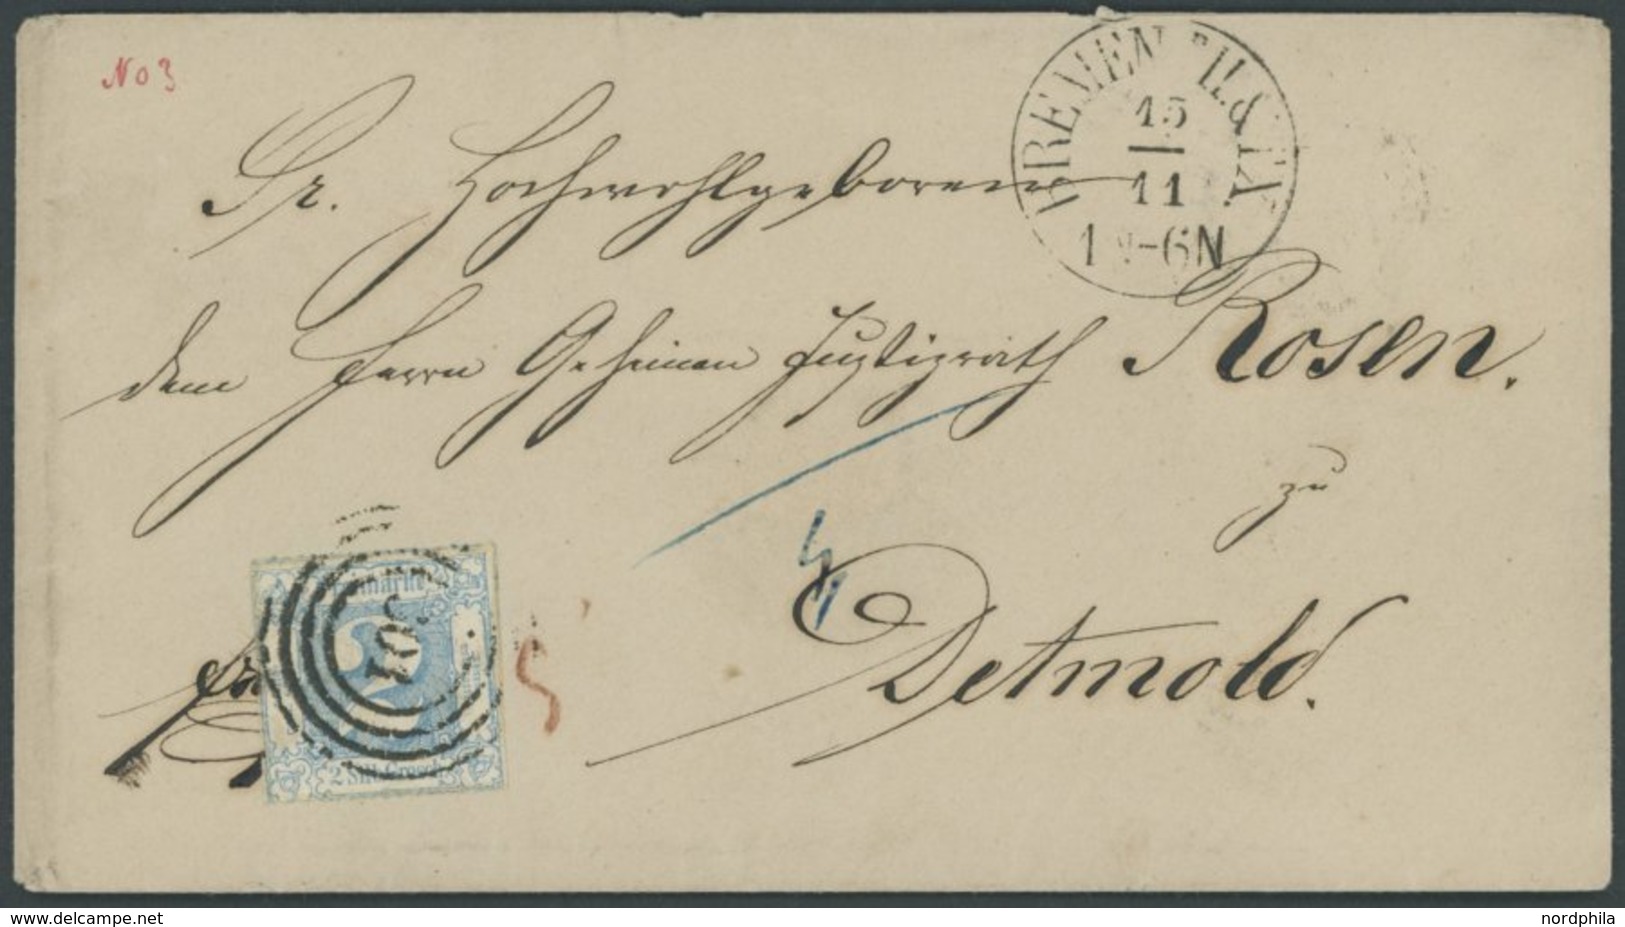 No 3
BREMEN "H. & TX.
15
11
1 N-6N
Sr. Hochwohlgeboren
dem Herrn Geheimen Justizrath Rosen.
zu
Detmold.
Freimarke
2
301
2 Silb. Grosch.
www.delcampe.net
nordphila